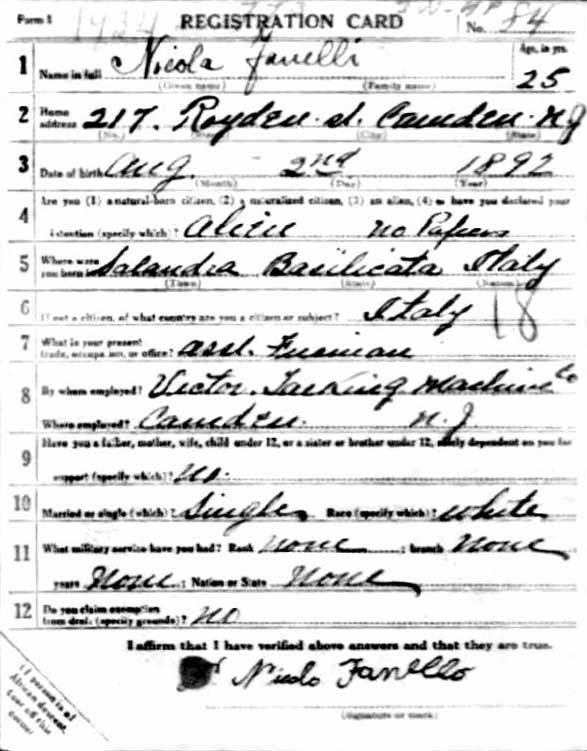 Form 1 REGISTRATION CARD No. 84
1 Name in full Nicola Fanelli Age, in yrs. 25
(Given name) (Family name)
2 Home address 217. Royden. st. Camden. N J
(No.) (Street) (City) (State)
3 Date of birth Aug. 2nd 1892
(Month) (Day) (Year)
4 Are you (1) a natural-born citizen, (2) a naturalized citizen, (3) an alien, (4) or have you declared your
intention (specify which)? Alien no Papers
5 Where were you born? Salandra Basilicata Italy
(Town) (State) (Nation)
6 If not a citizen, of what country are you a citizen or subject? Italy 18
7 What is your present trade, occupation, or office? asst. Fireman
8 By whom employed? Victor. Talking Machine Co
Where employed? Camden. N. J.
9 Have you a father, mother, wife, child under 12, or a sister or brother under 12, solely dependent on you for
support (specify which)? No.
10 Married or single (which)? Single Race (specify which)? White
11 What military service have you had? Rank none ; branch none
years None ; Nation or State None
12 Do you claim exemption from draft (specify grounds)? no
I affirm that I have verified above answers and that they are true.
Nicolo Fanello
(Signature or mark)
If person is of
African descent,
tear off this
corner